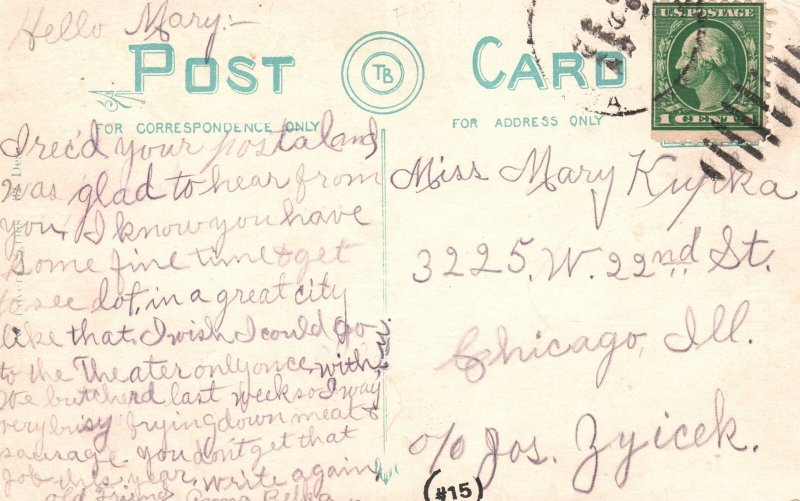 Hello Mary:-
POST CARD
TB
U.S. POSTAGE
1 CENT
FOR CORRESPONDENCE ONLY
FOR ADDRESS ONLY
I rec'd your postal and
was glad to hear from
you, I know you have
some fine time & get
to see lot, in a great city
like that, I wish I could go
to the Theater only once, with
We butcherd last week so I way
very busy frying down meat &
sausage. you don't get that
job this year, write again
old Friend Anna
Miss Mary Kupka
3225, W. 22nd St.
Chicago, Ill.
c/o Jos. Zyicek.
#15